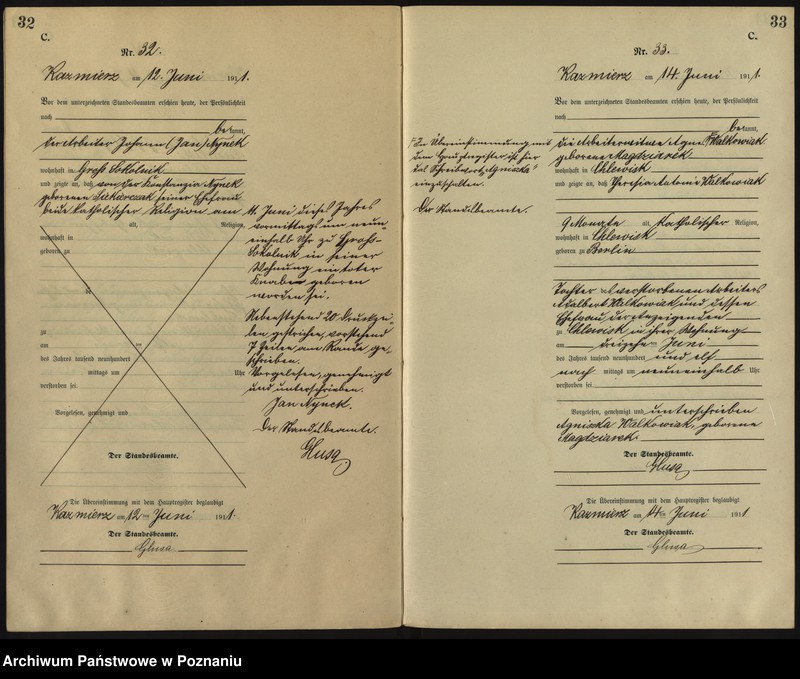 32
C.
Nr. 32.
Kazmierz am 12. Juni 1911.
Vor dem unterzeichneten Standesbeamten erschien heute, der Persönlichkeit
nach
bekannt,
der Arbeiter Johann (Jan) Nynek
wohnhaft in Groß Sokolnik
und zeigte an, daß von der Konstanzia Nynek
geborenen seiner Ehefrau
beide katholischer Religion am
alt, Religion,
wohnhaft in
geboren zu
zu
am ten
des Jahres tausend neunhundert
mittags um Uhr
verstorben sei.
Vorgelesen, genehmigt und
Der Standesbeamte.
11. Juni dieses Jahres
vormittags um neun
einhalb Uhr zu Groß-
Sokolnik in seiner
Wohnung ein toter
Knabe geboren
worden sei.
Nebenstehend 20 Druckzei-
len gestrichen, vorstehend
7 Zeilen am Rande ge-
schrieben.
Vorgelesen, genehmigt
und unterschrieben.
Jan Nynek.
Der Standesbeamte.
Glusa
Die Übereinstimmung mit dem Hauptregister beglaubigt
Kazmierz am 12ten Juni 1911.
Der Standesbeamte.
Glusa
33
C.
Nr. 33.
Kazmierz am 14. Juni 1911.
Vor dem unterzeichneten Standesbeamten erschien heute, der Persönlichkeit
nach
bekannt,
die Arbeiterwitwe Agnes Walkowiak
geborene Magdziarek
wohnhaft in Chlewisk
und zeigte an, daß Theresia Antonie Walkowiak
9 Monate alt, katholischer Religion,
wohnhaft in Chlewisk
geboren zu Berlin
Tochter des verstorbenen Arbeiters
Adalbert Walkowiak und dessen
Ehefrau, der Anzeigenden
zu Chlewisk in ihrer Wohnung
am dreizehn ten Juni
des Jahres tausend neunhundert und elf
nach mittags um neuneinhalb Uhr
verstorben sei.
Vorgelesen, genehmigt und unterschrieben
Agniszka Walkowiak, geborene
Magdziarek.
Der Standesbeamte.
Glusa
In Übereinstimmung mit
dem Hauptregister ist hier
das
einzuschalten.
Der Standesbeamte.
Die Übereinstimmung mit dem Hauptregister beglaubigt
Kazmierz am 14ten Juni 1911
Der Standesbeamte.
Glusa
Archiwum Państwowe w Poznaniu